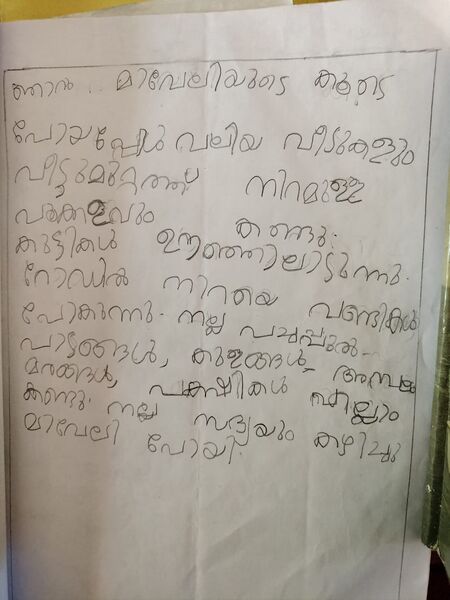 ഞാൻ മാവേലിയുടെ കൂടെ
പോയപ്പോൾ വലിയ വീടുകളും
വീട്ടുമുറ്റത്ത് നിറമുള്ള
പൂക്കളവും കണ്ടു.
കുട്ടികൾ ഊഞ്ഞാലാടുന്നു.
റോഡിൽ നിറയെ വണ്ടികൾ
പോകുന്നു. നല്ല പച്ചപ്പുൽ-
പാടങ്ങൾ, കുളങ്ങൾ, അമ്പലം
മരങ്ങൾ, പക്ഷികൾ എല്ലാം
കണ്ടു. നല്ല സദ്യയും കഴിച്ചു
മാവേലി പോയി.